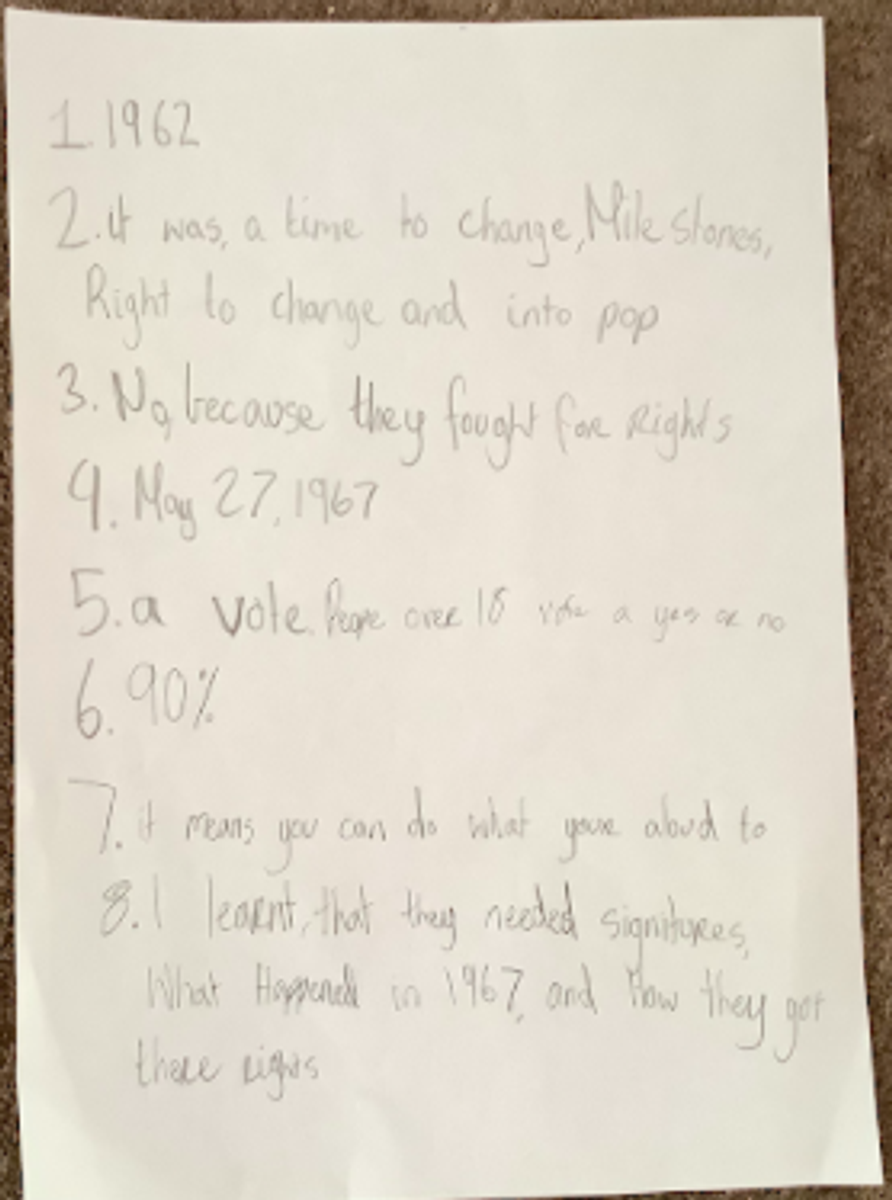 1. 1962
2. it was, a time to change, Mile stones,
Right to change and into pop
3. No, because they fought for Rights
4. May 27, 1967
5. a vote. Peope over 18 vote a yes or no
6. 90%
7. it means you can do what your aloud to
8. I learnt, that they needed signitures,
What Happened in 1967, and How they got
there rights